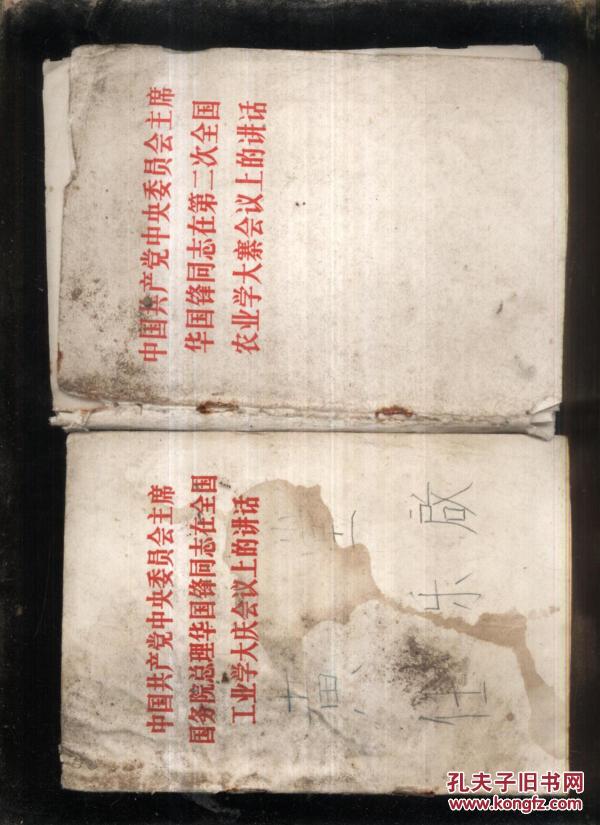 中国共产党中央委员会主席
华国锋同志在第二次全国
农业学大寨会议上的讲话
中国共产党中央委员会主席
国务院总理华国锋同志在全国
工业学大庆会议上的讲话
黄
任乐啟
孔夫子旧书网
www.kongfz.com